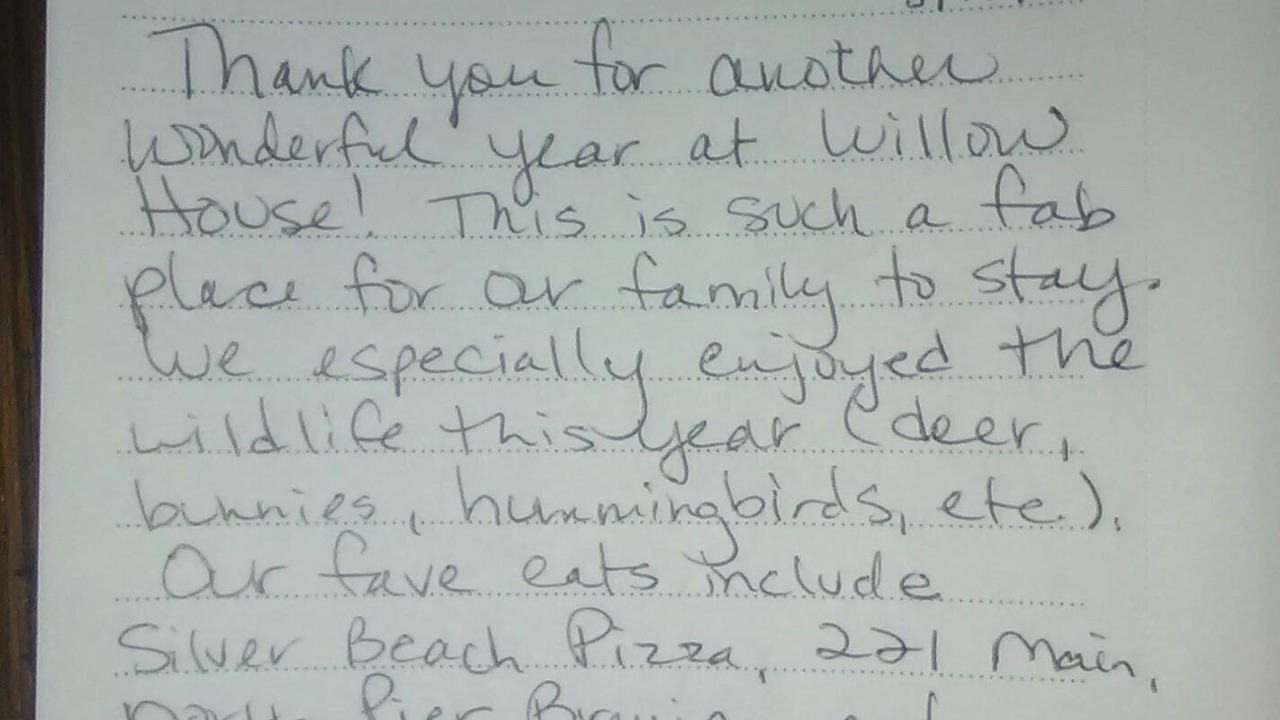 Thank you for another
wonderful year at Willow
House! This is such a fab
place for our family to stay.
We especially enjoyed the
wildlife this year (deer,
bunnies, hummingbirds, etc.).
Our fave eats include
Silver Beach Pizza, 221 Main,
Pier